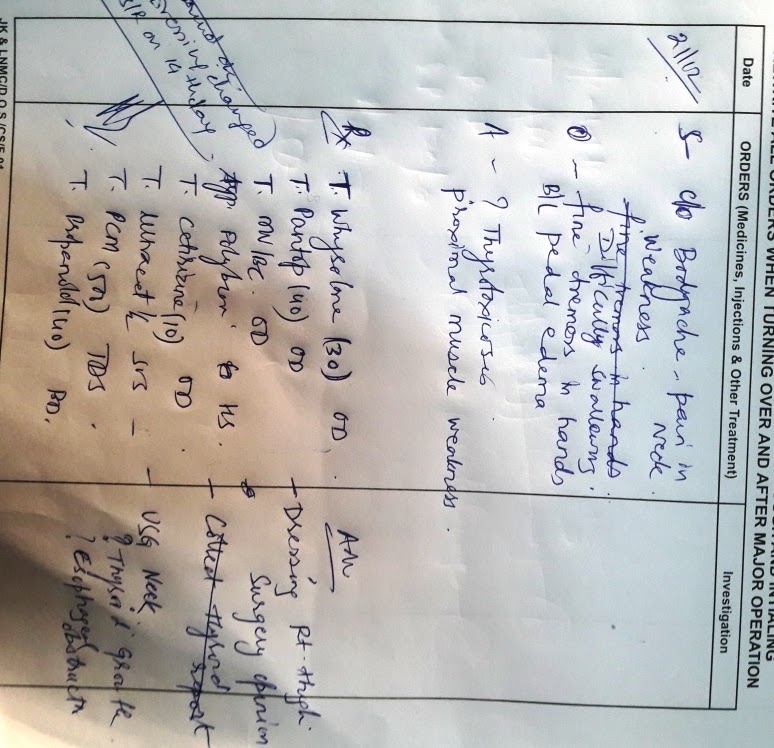 ALL ORDERS WHEN TURNING OVER AND AFTER MAJOR OPERATION
Date
ORDERS (Medicines, Injections & Other Treatment)
Investigation
21/12
S- c/o Bodyache - pain in
Neck.
Weakness.
fine tremors in hands
Difficulty swallowing.
O - fine tremors in hands
B/L pedal edema
A - ? Thyrotoxicosis
proximal muscle weakness.
Rx T. Wysolone (30) OD
T. Pantop (40) OD
T. MVBC OD
HS.
T. cetirizine (10) OD
T. Ultracet ½ SOS
T. PCM (500) TDS
T. (40) BD.
Adv
- Dressing Rt. thigh.
Surgery opinion
- Collect thyroid report
- USG Neck
? Thyroid growth
? Esophageal
obstructn
changed
Dressing today
S/R on 14
JK & LNMC/D.O.S./CS/F-01